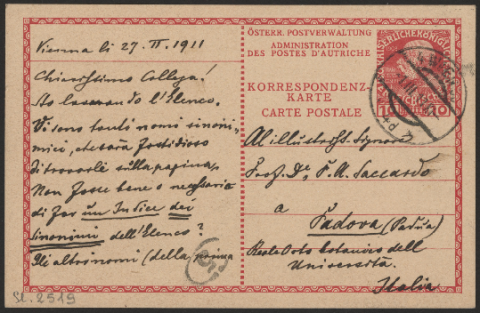 Vienna li 27. II. 1911
Chiarissimo Collega!
Sto lavorando l'Elenco.
Vi sono tanti nomi sinoni-
mici, che sarà fastidioso
di trovarli sulla pagina.
Non fosse bene o necessario
di far un Indice dei
Sinonimi dell'Elenco?
Gli altri nomi (della prima
Sc. 2519
ÖSTERR. POSTVERWALTUNG
ADMINISTRATION
DES POSTES D'AUTRICHE
KORRESPONDENZ-
KARTE
CARTE POSTALE
10 10
All illustriss. Signore
Prof. Dr. P. A. Saccardo
a
Padova (Padua)
Reale Orto botanico dell
Università.
Italia